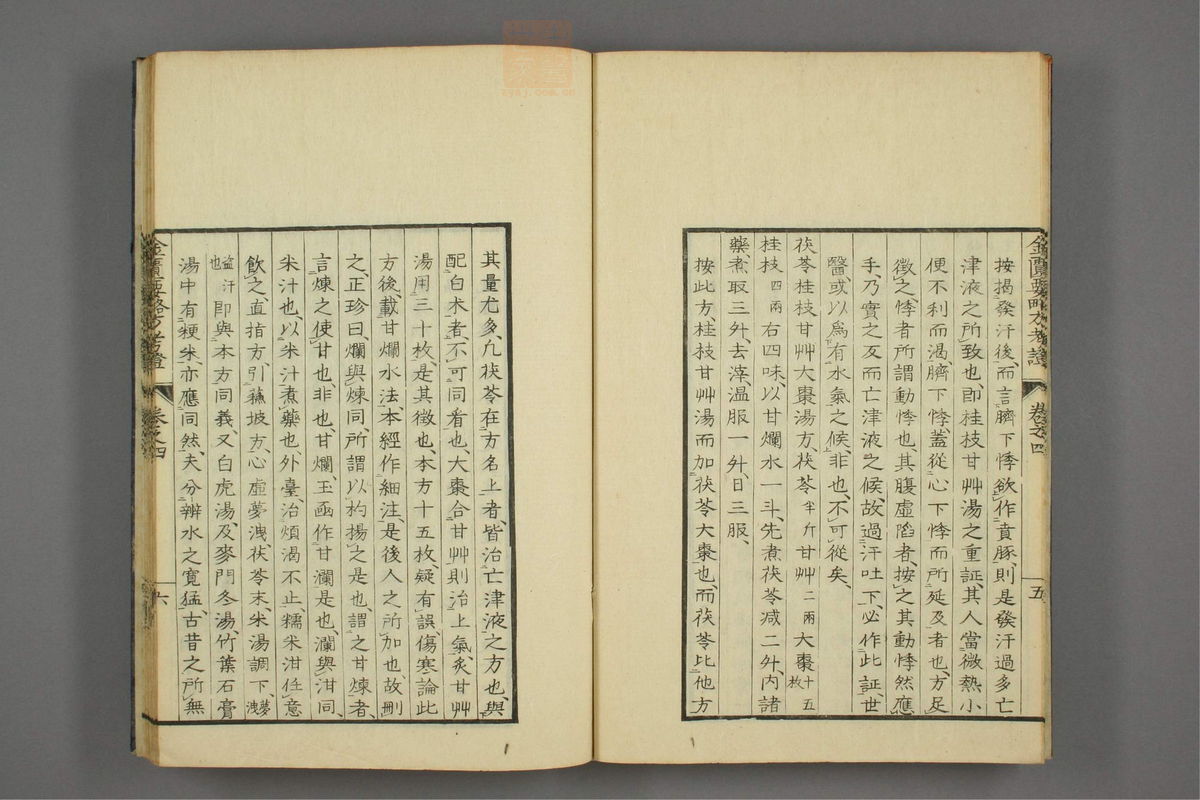 按揭發汗後而言臍下悸欲作賁豚則是發汗過多亡
津液之所致也即桂枝甘艸湯之重証其人當微熱小
便不利而渴臍下悸蓋從心下悸而所延及者也方足
徵之悸者所謂動悸也其腹虛陷者按之其動悸然應
手乃實之反而亡津液之候故過汗吐下必作此証世
醫或以爲有水氣之候非也不可從矣
茯苓桂枝甘艸大棗湯方茯苓半斤甘艸二兩大棗十五枚
桂枝四兩右四味以甘爛水一斗先煮茯苓减二升內諸
藥煮取三升去滓溫服一升日三服
按此方桂枝甘艸湯而加茯苓大棗也而茯苓比他方
金匱要略方考證
卷之四
五
其量尤多凡茯苓在方名上者皆治亡津液之方也與
配白朮者不可同看也大棗合甘艸則治上氣炙甘艸
湯用三十枚是其徵也本方十五枚疑有誤傷寒論此
方後載甘爛水法本經作細注是後人之所加也故刪
之正珍曰爛與煉同所謂以杓揚之是也謂之甘煉者
言煉之使甘也非也甘爛玉函作甘瀾是也瀾與泔同
米汁也以米汁煮藥也外臺治煩渴不止糯米泔任意
飲之直指方引蘓坡方心虛夢洩茯苓末米湯調下夢洩
盗汗也即與本方同義又白虎湯及麥門冬湯竹葉石膏
湯中有粳米亦應同然夫分辨水之寬猛古昔之所無
金匱要略方考證
卷之四
六